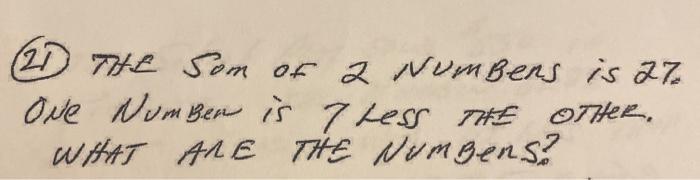 (21) THE Som OF 2 NumBers is 27.
ONe NumBer is 7 Less THE OTHER.
WHAT ARE THE NumBers?